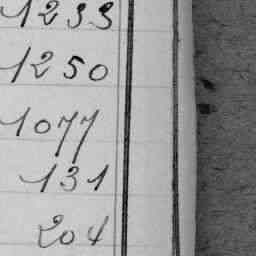 1233
1250
1077
131
204